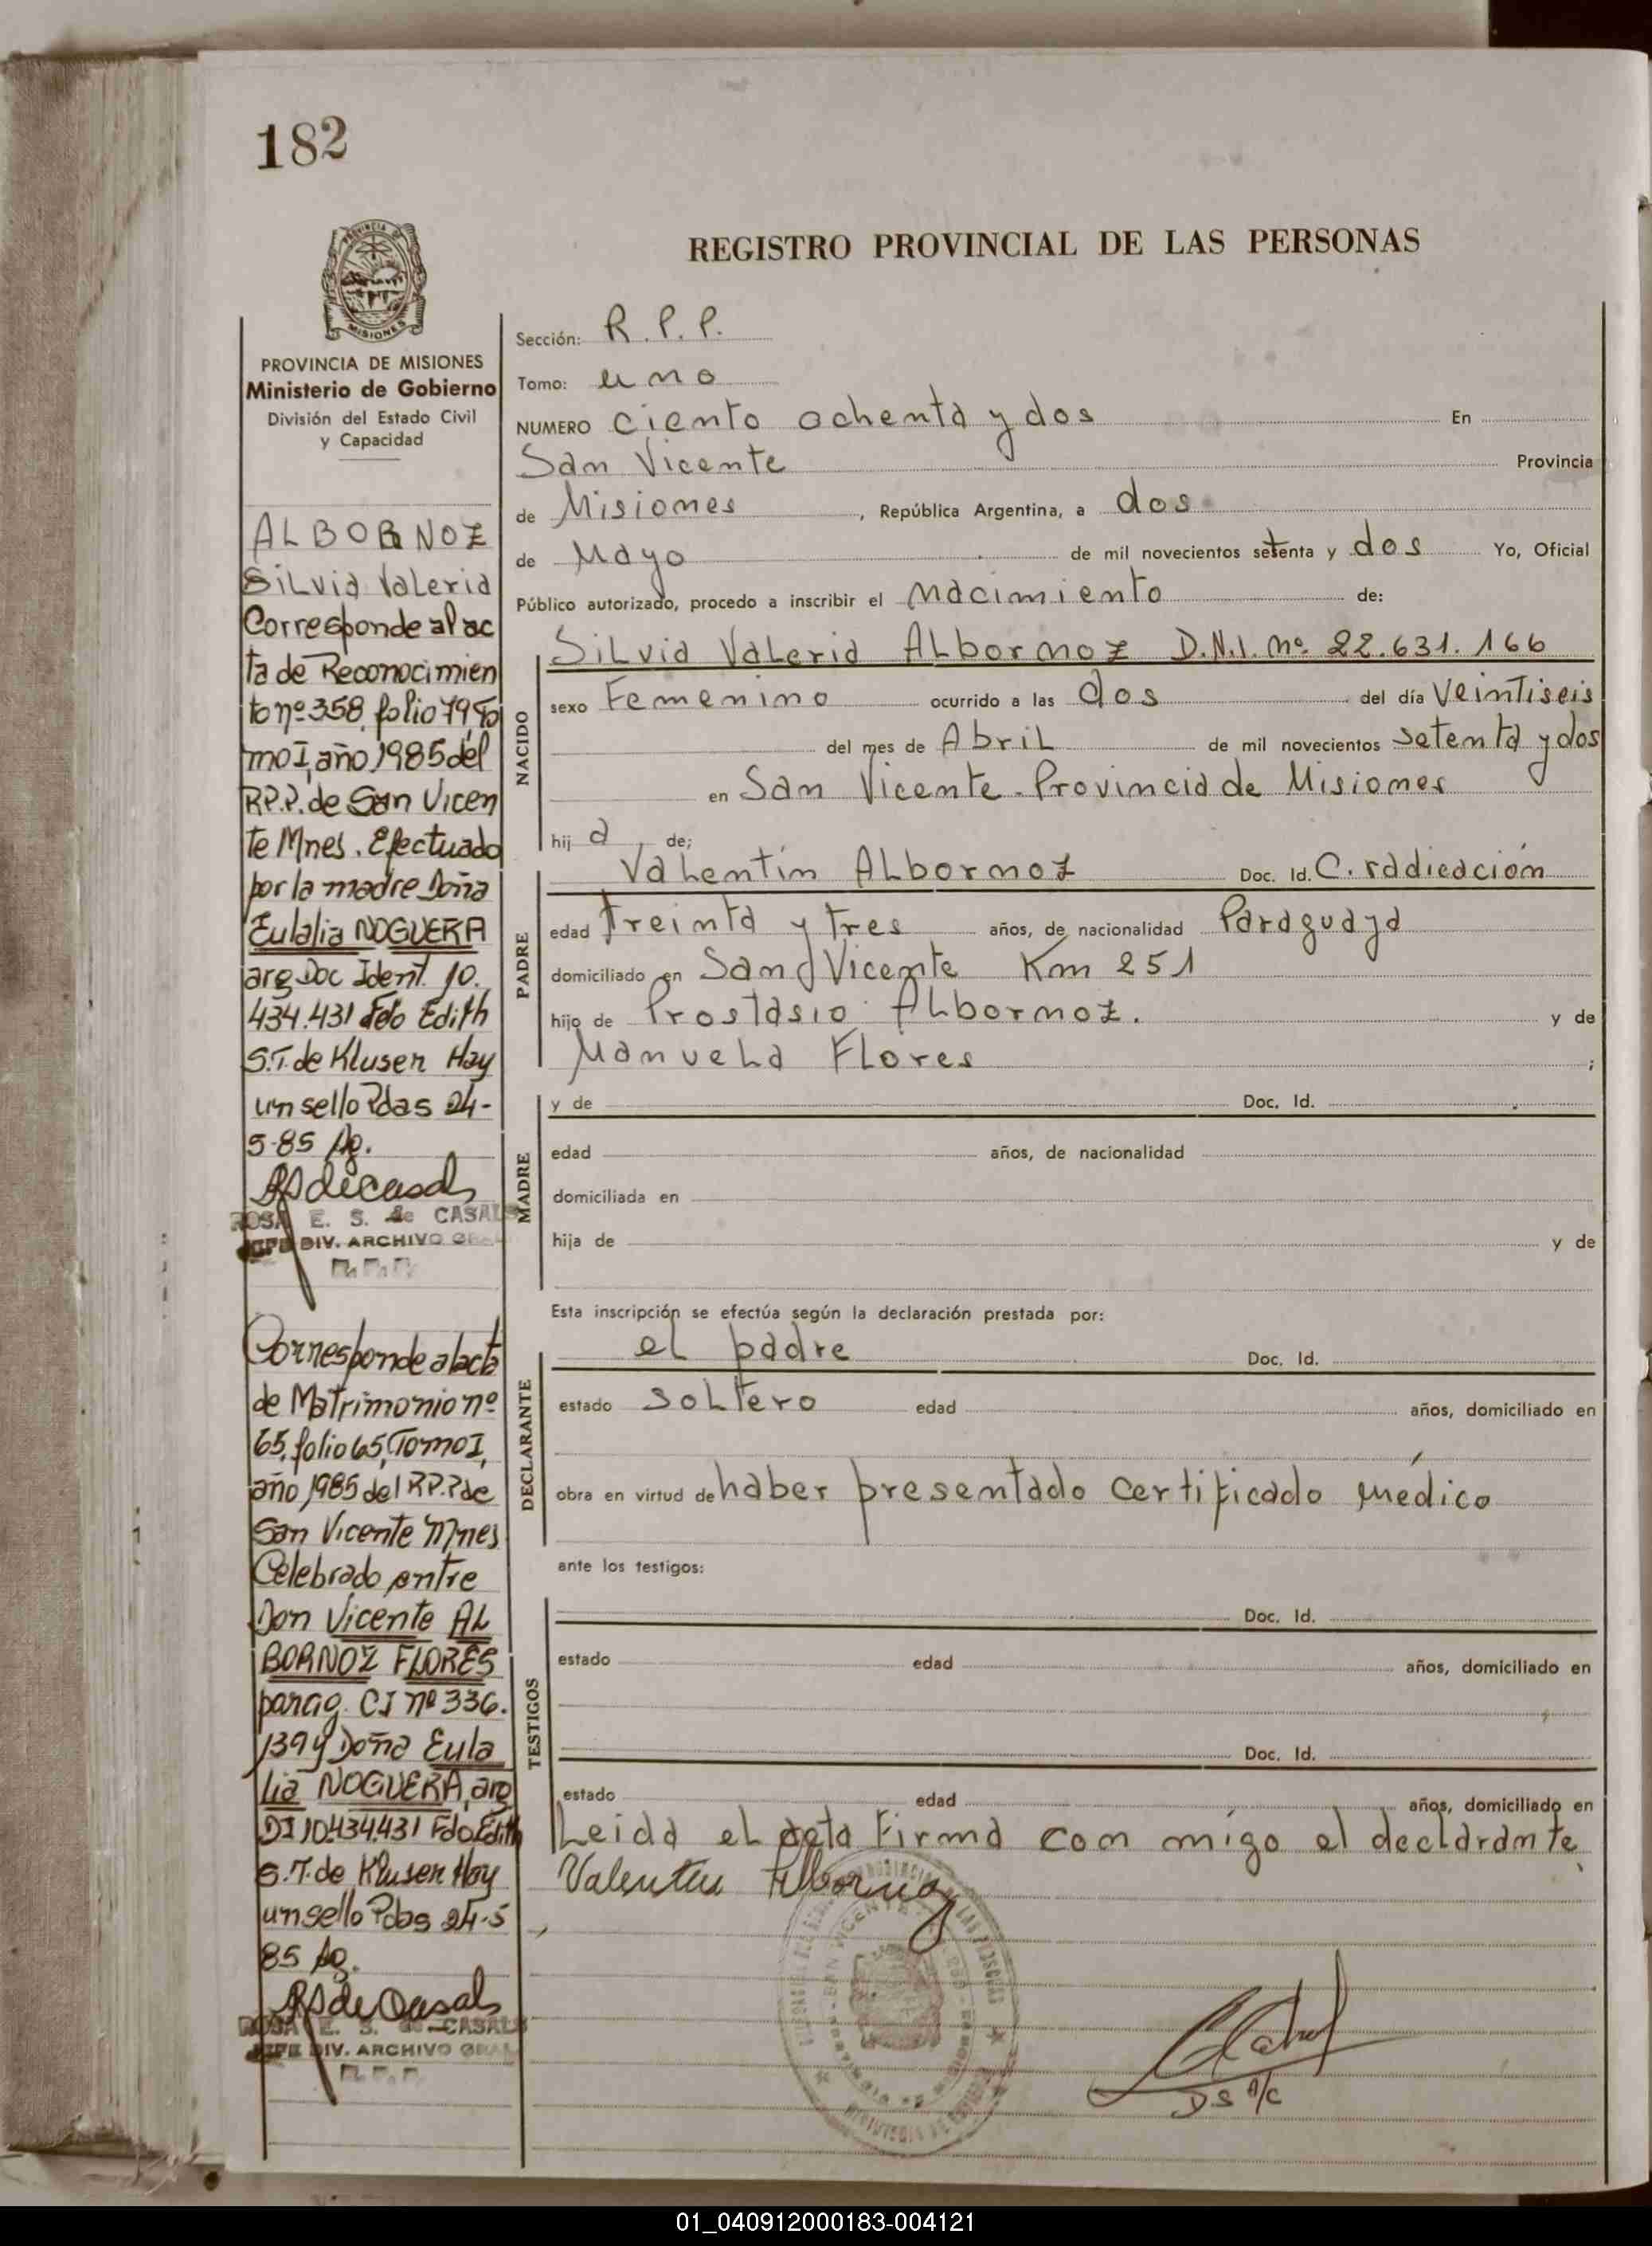 182
REGISTRO PROVINCIAL DE LAS PERSONAS
PROVINCIA DE MISIONES
Ministerio de Gobierno
División del Estado Civil
y Capacidad
ALBORNOZ
Silvia Valeria
Corresponde al ac
ta de Reconocimien
to nº 358, folio 79, To
mo I, año 1985 del
R.P.P. de San Vicen
te Mnes. Efectuado
por la madre Doña
Eulalia NOGUERA
arg Doc Ident. 10.
434.431 Fdo Edith
S.T. de Klusen Hay
un sello Pdas 24-
5-85
ROSA E. S. de CASALS
JEFE DIV. ARCHIVO GRAL
R.P.P.
Corresponde al acta
de Matrimonio nº
65, folio 65, Tomo I,
año 1985 del R.P.P de
San Vicente Mnes
Celebrado entre
Don Vicente AL
BORNOZ FLORES
parag. CI nº 336.
139 y Doña Eula
lia NOGUERA, arg
DI 10.434.431 Fdo Edith
S.T. de Klusen Hay
un sello Pdas 24-5
85
ROSA E. S. de CASALS
JEFE DIV. ARCHIVO GRAL
R.P.P.
Sección: R.P.P.
Tomo: uno
NUMERO ciento ochenta y dos En
San Vicente Provincia
de Misiones, República Argentina, a dos
de Mayo de mil novecientos setenta y dos Yo, Oficial
Público autorizado, procedo a inscribir el nacimiento de:
NACIDO
Silvia Valeria Albornoz D.N.I. nº. 22.631.166
sexo Femenino ocurrido a las dos del día Veintiseis
del mes de Abril de mil novecientos setenta y dos
en San Vicente - Provincia de Misiones
hija de;
PADRE
Valentín Albornoz Doc. Id. C. radicación
edad treinta y tres años, de nacionalidad Paraguaya
domiciliado en San Vicente Km 251
hijo de Prostasio Albornoz. y de
Manuela Flores ;
MADRE
y de Doc. Id.
edad años, de nacionalidad
domiciliada en
hija de y de
Esta inscripción se efectúa según la declaración prestada por:
DECLARANTE
el padre Doc. Id.
estado soltero edad años, domiciliado en
obra en virtud de haber presentado certificado médico
ante los testigos:
TESTIGOS
Doc. Id.
estado edad años, domiciliado en
Doc. Id.
estado edad años, domiciliado en
Leida el acta firma con migo el declarante
Valentin Albornoz
DS A/C
01_040912000183-004121